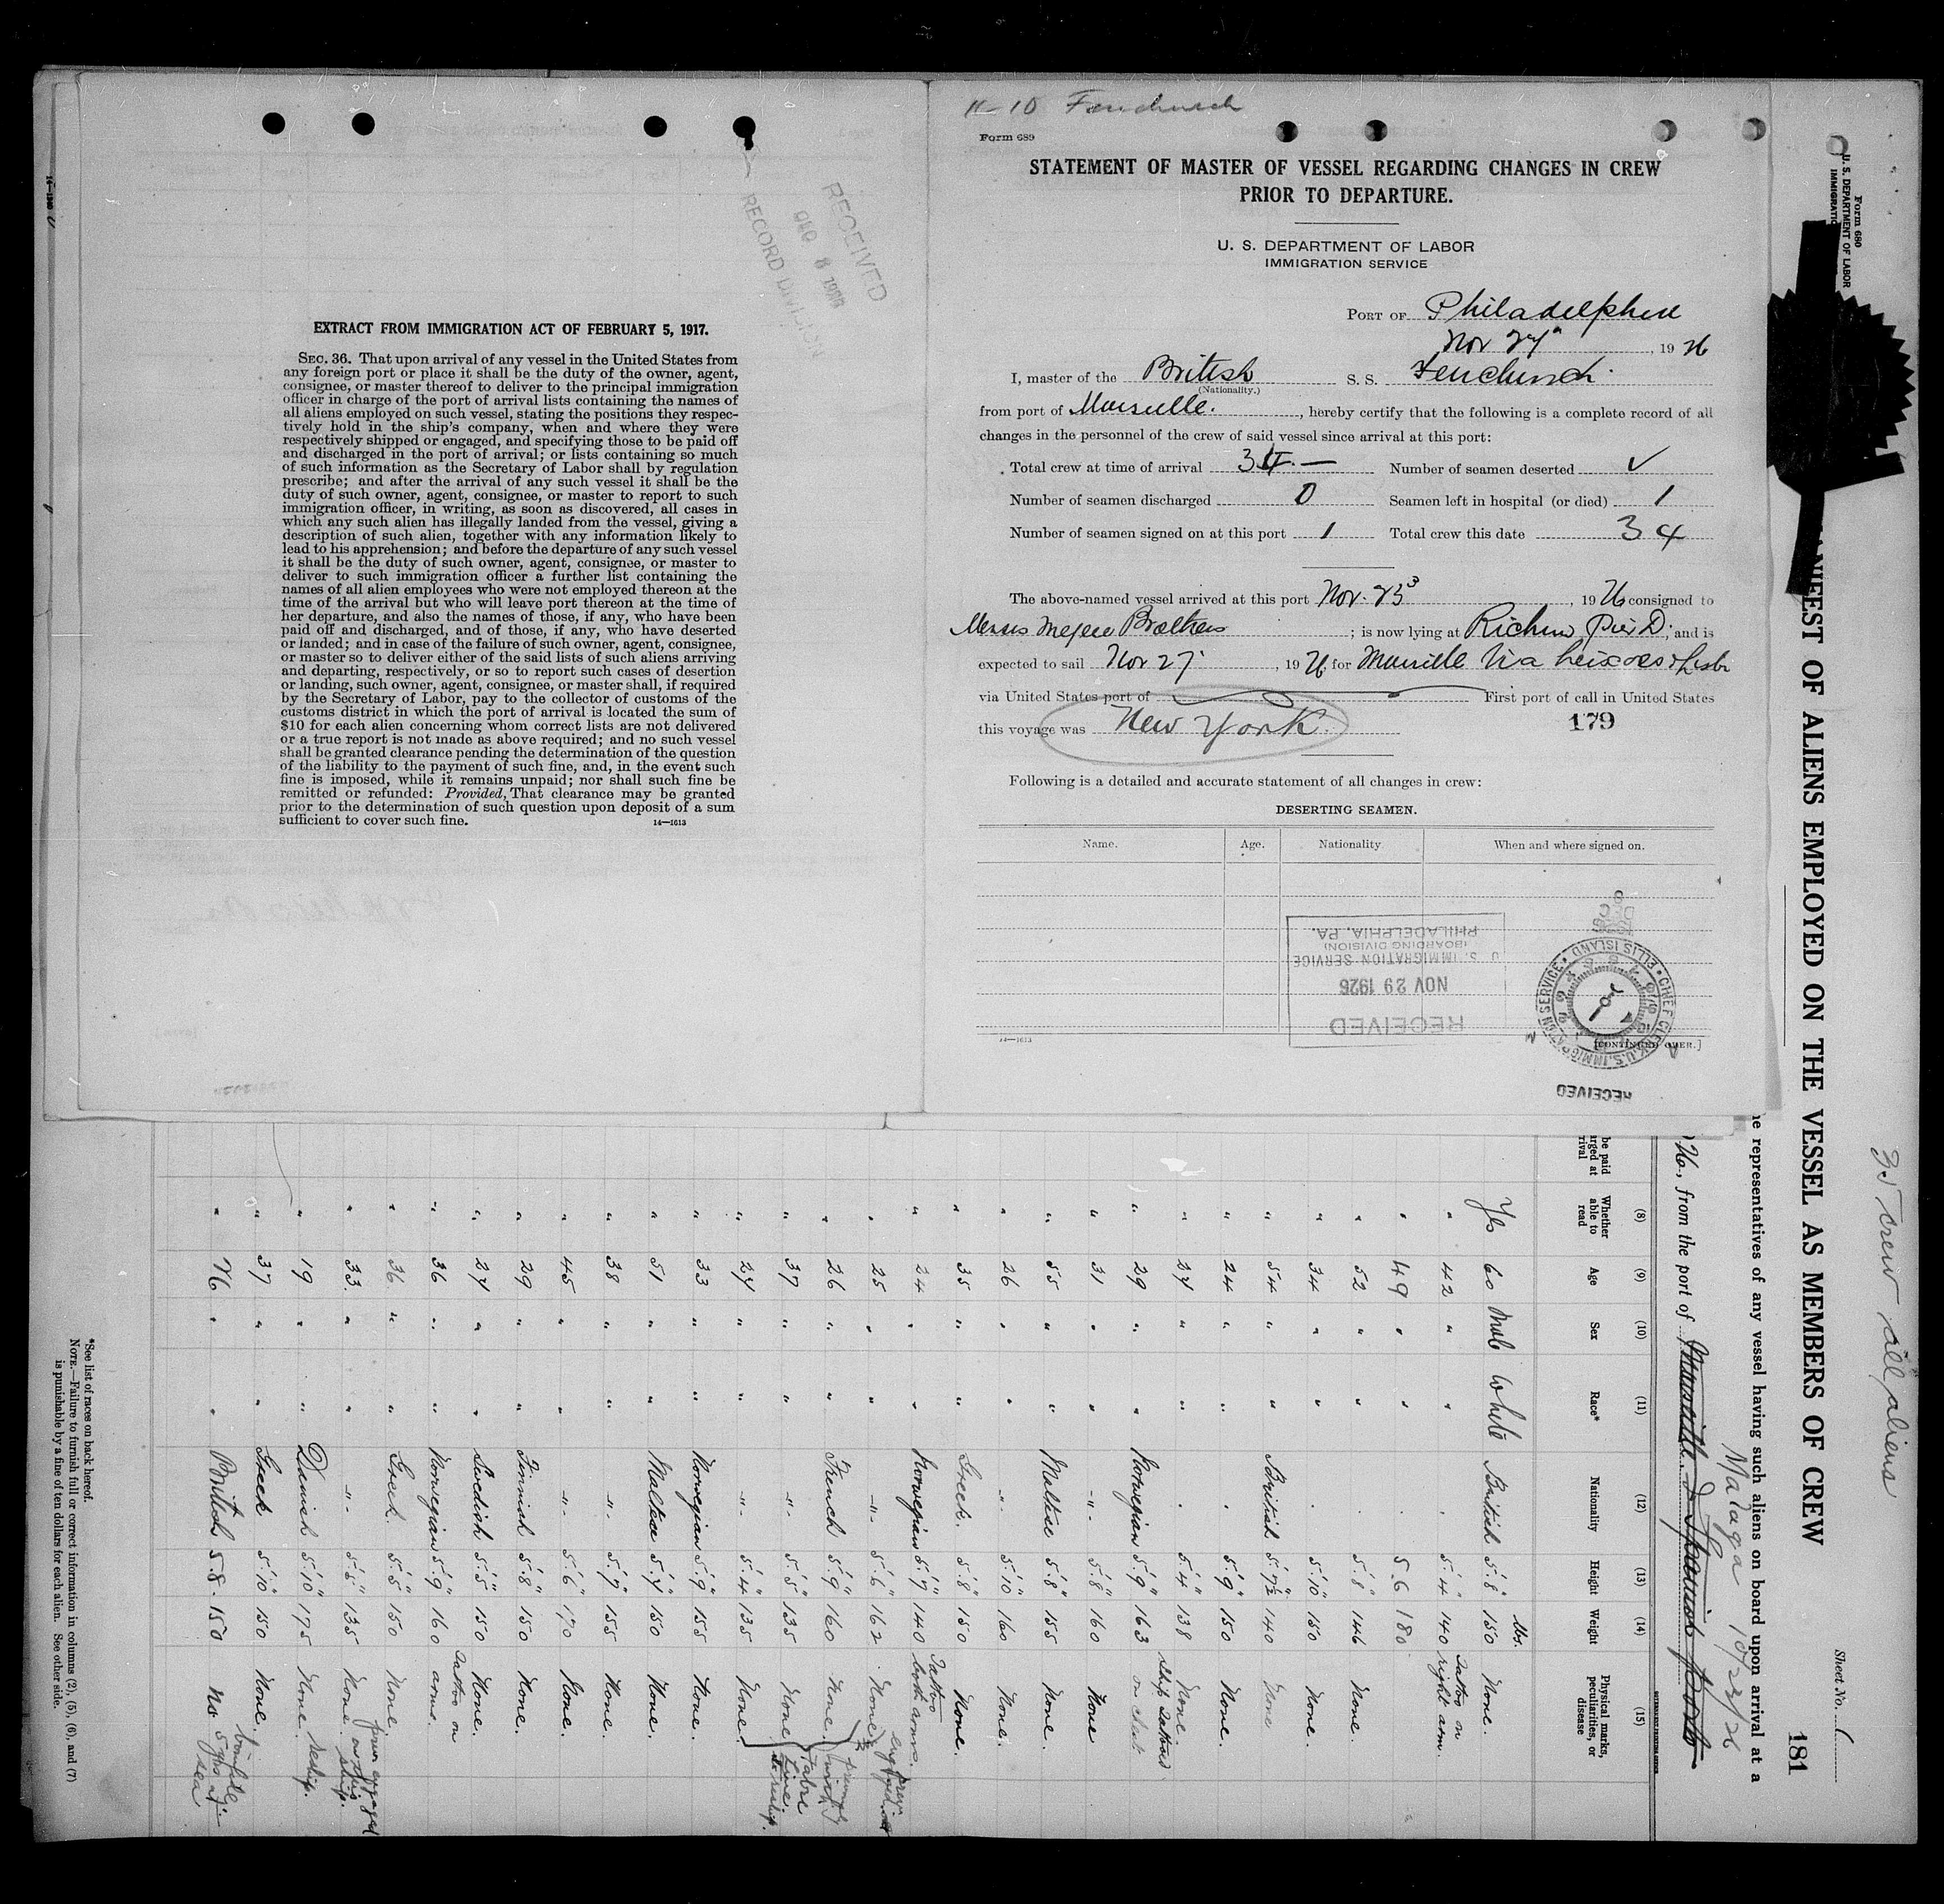 EXTRACT FROM IMMIGRATION ACT OF FEBRUARY 5, 1917.
SEC. 36. That upon arrival of any vessel in the United States from
any foreign port or place it shall be the duty of the owner, agent,
consignee, or master thereof to deliver to the principal immigration
officer in charge of the port of arrival lists containing the names of
all aliens employed on such vessel, stating the positions they respec-
tively hold in the ship's company, when and where they were
respectively shipped or engaged, and specifying those to be paid off
and discharged in the port of arrival; or lists containing so much
of such information as the Secretary of Labor shall by regulation
prescribe; and after the arrival of any such vessel it shall be the
duty of such owner, agent, consignee, or master to report to such
immigration officer, in writing, as soon as discovered, all cases in
which any such alien has illegally landed from the vessel, giving a
description of such alien, together with any information likely to
lead to his apprehension; and before the departure of any such vessel
it shall be the duty of such owner, agent, consignee, or master to
deliver to such immigration officer a further list containing the
names of all alien employees who were not employed thereon at the
time of the arrival but who will leave port thereon at the time of
her departure, and also the names of those, if any, who have been
paid off and discharged, and of those, if any, who have deserted
or landed; and in case of the failure of such owner, agent, consignee,
or master so to deliver either of the said lists of such aliens arriving
and departing, respectively, or so to report such cases of desertion
or landing, such owner, agent, consignee, or master shall, if required
by the Secretary of Labor, pay to the collector of customs of the
customs district in which the port of arrival is located the sum of
$10 for each alien concerning whom correct lists are not delivered
or a true report is not made as above required; and no such vessel
shall be granted clearance pending the determination of the question
of the liability to the payment of such fine, and, in the event such
fine is imposed, while it remains unpaid; nor shall such fine be
remitted or refunded: Provided, That clearance may be granted
prior to the determination of such question upon deposit of a sum
sufficient to cover such fine.
14—1613
RECEIVED
DEC 8
RECORD DIVISION
11-10 Fenchurch
Form 689
STATEMENT OF MASTER OF VESSEL REGARDING CHANGES IN CREW
PRIOR TO DEPARTURE.
U. S. DEPARTMENT OF LABOR
IMMIGRATION SERVICE
PORT OF Philadelphia
Nov 27, 1926
I, master of the British S. S. Fenchurch
(Nationality.)
from port of Marseille., hereby certify that the following is a complete record of all
changes in the personnel of the crew of said vessel since arrival at this port:
Total crew at time of arrival 34 — Number of seamen deserted ✓
Number of seamen discharged 0 Seamen left in hospital (or died) 1
Number of seamen signed on at this port 1 Total crew this date 34
The above-named vessel arrived at this port Nov. 23, 1926 consigned to
Messrs Brothers; is now lying at Pier D, and is
expected to sail Nov 27, 1926 for Marseille Via Leixoes
via United States port of First port of call in United States
this voyage was New York.
179
Following is a detailed and accurate statement of all changes in crew:
DESERTING SEAMEN.
Name. Age. Nationality. When and where signed on.
RECEIVED
NOV 29 1926
U. S. IMMIGRATION SERVICE
(BOARDING DIVISION)
PHILADELPHIA, PA.
CHIEF CLERK, U.S. IMMIGRATION SERVICE • ELLIS ISLAND •
RECEIVED
14—1613
[CONTINUED OVER.]
Form 680
U. S. DEPARTMENT OF LABOR
35 crew all aliens
Sheet No. 1
181
OF ALIENS EMPLOYED ON THE VESSEL AS MEMBERS OF CREW
representatives of any vessel having such aliens on board upon arrival at a
26, from the port of Marseille & Spanish ports
Malaga 10/23/26
(8) (9) (10) (11) (12) (13) (14) (15)
Whether able to read Age Sex Race* Nationality Height Weight Physical marks, peculiarities, or disease
lbs.
Yes 60 Male White British 5.8" 150 None.
" 42 " " " 5.4" 140 Tattoo on right arm.
" 49 " " " 5 6 180
" 52 " " " 5.8" 146 None.
" 34 " " " 5.10" 150 None.
" 54 " " British 5.7½ 140 None
" 24 " " " 5.9" 150 None.
" 27 " " " 5.4" 138 None.
" 29 " " Norwegian 5.9" 163 Ship tattoed on chest
" 31 " " " 5.8" 160 None
" 55 " " Maltese 5.8" 155 None.
" 26 " " " 5.10" 160 None.
" 35 " " Greek. 5.8" 150 None.
" 24 " " Norwegian 5.7" 140 Tattoo both arms.
" 25 " " " 5.6" 162 None
" 26 " " French 5.9" 160 None.
" 37 " " " 5.5" 135 None
" 27 " " " 5.4" 135 None.
" 33 " " Norwegian 5.9" 155 None.
" 51 " " Maltese 5.7" 150 None.
" 38 " " " 5.7" 155 None.
" 45 " " " 5.6" 170 None.
" 29 " " Finnish 5.8" 150 None.
" 27 " " Swedish 5.5" 150 None.
" 36 " " Norwegian 5.9" 160 Tattoo on arms.
" 36 " " Greek. 5.5" 150 None.
" 33 " " " 5.5" 135 None
" 19 " " Danish 5.10" 175 None.
" 37 " " Greek 5.10" 150 None.
" 26 " " British 5.8. 150 No
*See list of races on back hereof.
NOTE.—Failure to furnish full or correct information in columns (2), (5), (6), and (7)
is punishable by a fine of ten dollars for each alien. See other side.